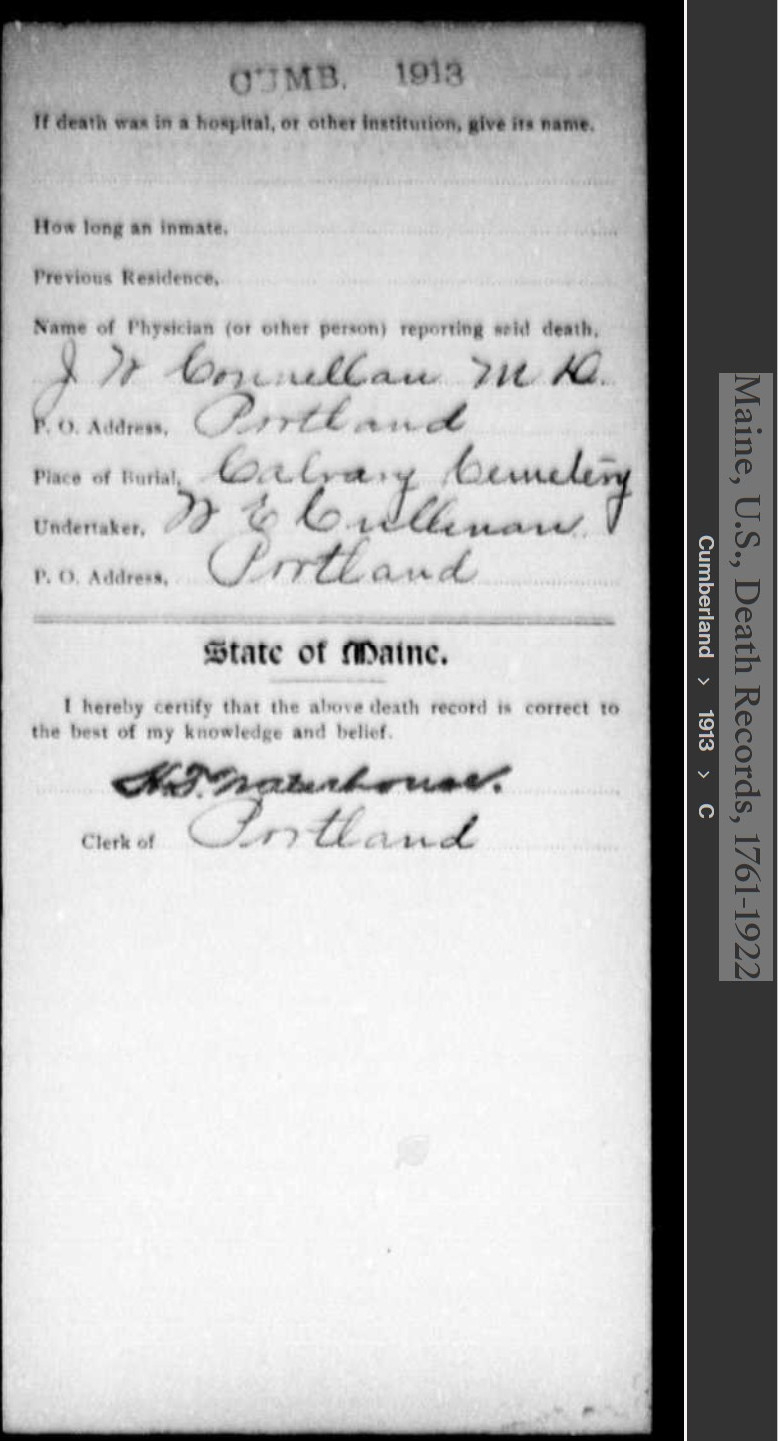 CUMB. 1913
If death was in a hospital, or other institution, give its name.
How long an inmate,
Previous Residence,
Name of Physician (or other person) reporting said death,
J W Connellan M D.
P. O. Address, Portland
Place of Burial, Calvary Cemetery
Undertaker, W E Cullinan
P. O. Address, Portland
State of Maine.
I hereby certify that the above death record is correct to
the best of my knowledge and belief.
Waterhouse.
Clerk of Portland
Maine, U.S., Death Records, 1761-1922
Cumberland > 1913 > C